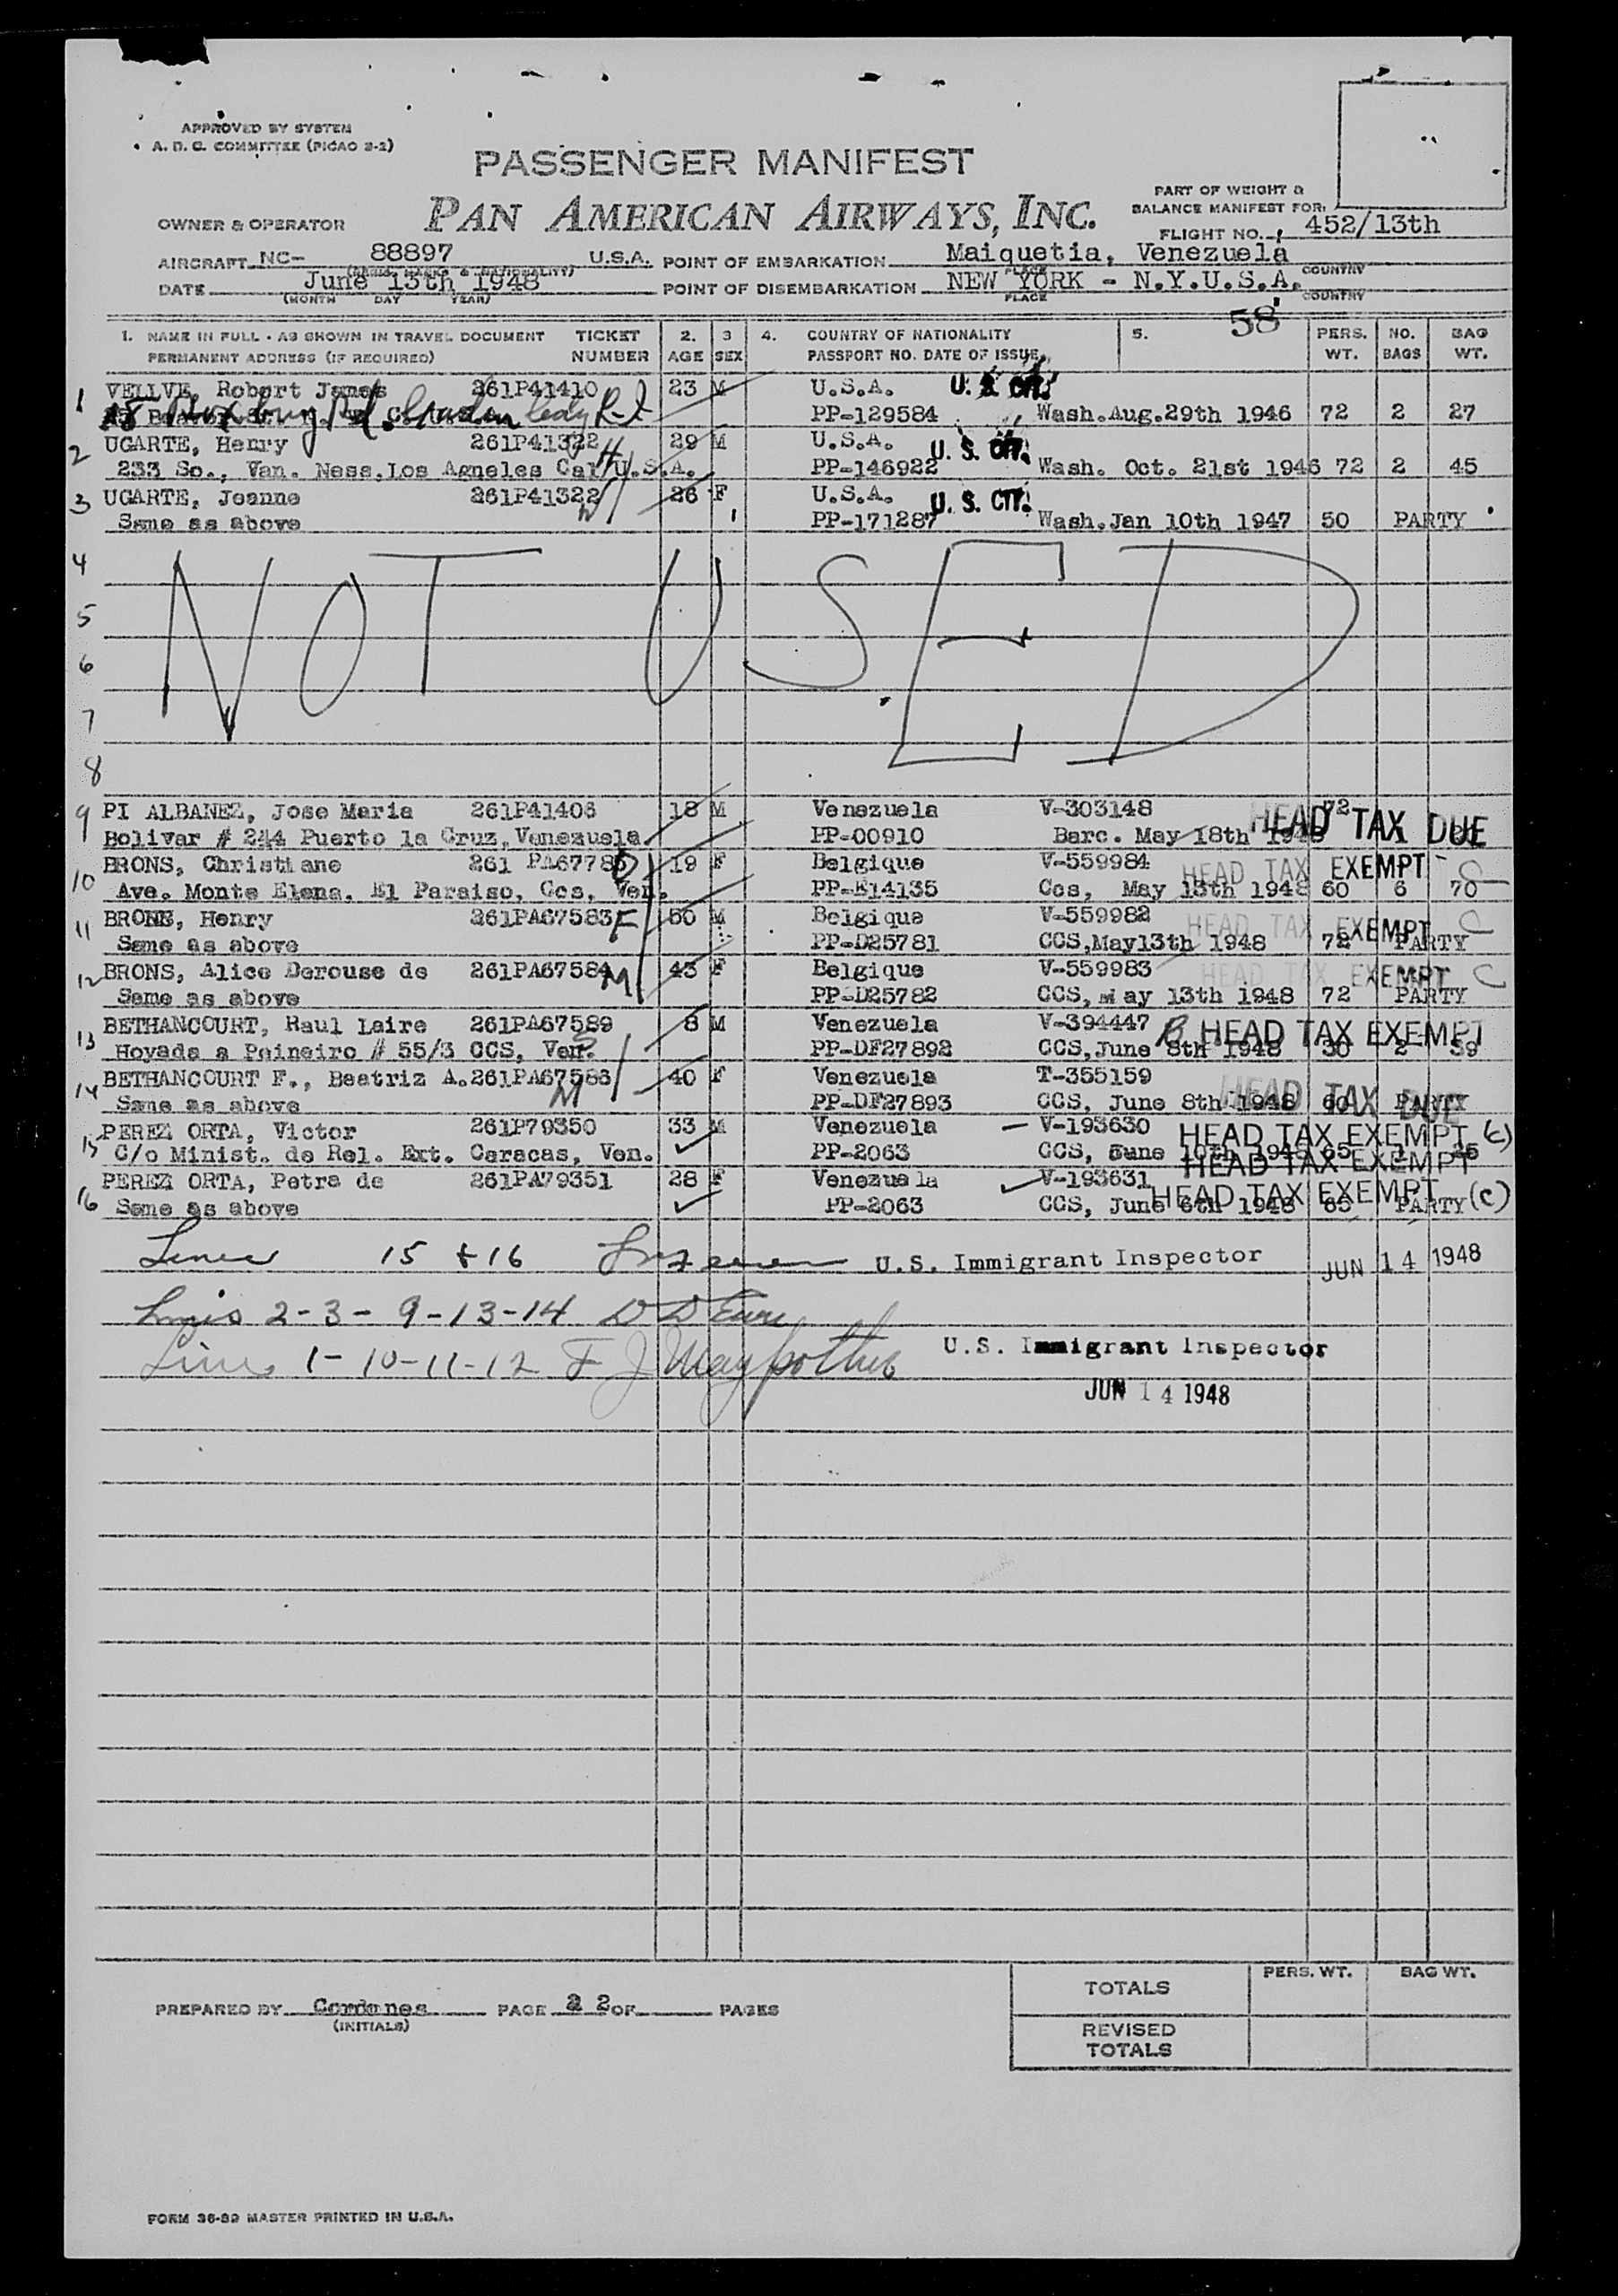 APPROVED BY SYSTEM
A. D. C. COMMITTEE (PICAO 2-2)
PASSENGER MANIFEST
PAN AMERICAN AIRWAYS, INC.
PART OF WEIGHT &
BALANCE MANIFEST FOR:
OWNER & OPERATOR
FLIGHT NO. 452/13th
AIRCRAFT NC- 88897 U.S.A. POINT OF EMBARKATION Maiquetia, Venezuela
(MARKS & NATIONALITY) PLACE COUNTRY
DATE June 13th 1948 POINT OF DISEMBARKATION NEW YORK - N.Y.U.S.A.
(MONTH DAY YEAR) PLACE COUNTRY
58
1. NAME IN FULL - AS SHOWN IN TRAVEL DOCUMENT TICKET 2. 3 4. COUNTRY OF NATIONALITY 5. PERS. NO. BAG
PERMANENT ADDRESS (IF REQUIRED) NUMBER AGE SEX PASSPORT NO. DATE OF ISSUE WT. BAGS WT.
1 VELLVE, Robert James 261P41410 23 M U.S.A. U.S. CIT.
PP-129584 Wash.Aug.29th 1946 72 2 27
2 UGARTE, Henry 261P41322 29 M U.S.A. U.S. CIT.
233 So., Van. Ness,Los Agneles Cal. U.S.A. PP-146922 Wash. Oct. 21st 1946 72 2 45
3 UGARTE, Jeanne 261P41322 26 F U.S.A. U. S. CIT.
Same as above PP-171287 Wash.Jan 10th 1947 50 PARTY
4
NOT USED
5
6
7
8
9 PI ALBANEZ, Jose Maria 261P41406 18 M Venezuela V-303148 72 HEAD TAX DUE
Bolivar # 244 Puerto la Cruz,Venezuela PP-00910 Barc. May 18th 1948
10 BRONS, Christiane 261 PA67785 D 19 F Belgique V-559984 HEAD TAX EXEMPT C
Ave. Monte Elena, El Paraiso, Ccs, Ven. PP-E14135 Ccs, May 13th 1948 60 6 70
11 BRONS, Henry 261PA67583 F 50 M Belgique V-559982 HEAD TAX EXEMPT C
Same as above PP-D25781 CCS,May13th 1948 72 PARTY
12 BRONS, Alice Derouse de 261PA67584 M 43 F Belgique V-559983 HEAD TAX EXEMPT C
Same as above PP-D25782 CCS, May 13th 1948 72 PARTY
13 BETHANCOURT, Raul Laire 261PA67589 8 M Venezuela V-394447 HEAD TAX EXEMPT
Hoyada a Peineiro # 55/3 CCS, Ven. S PP-DF27892 CCS,June 8th 1948 30 2 39
14 BETHANCOURT F., Beatriz A. 261PA67586 40 F Venezuela T-355159 HEAD TAX DUE
Same as above M PP-DF27893 CCS, June 8th 1948 60 PARTY
15 PEREZ ORTA, Victor 261P79350 33 M Venezuela V-193630 HEAD TAX EXEMPT (C)
C/o Minist. de Rel. Ext. Caracas, Ven. PP-2063 CCS, June 10th 1948 65 1 HEAD TAX EXEMPT
16 PEREZ ORTA, Petra de 261PA79351 28 F Venezuela V-193631 HEAD TAX EXEMPT (C)
Same as above PP-2063 CCS, June 6th 1948 65 PARTY
Lines 15 & 16 U.S. Immigrant Inspector JUN 14 1948
Lines 2-3-9-13-14
Lines 1-10-11-12 U.S. Immigrant Inspector
JUN 14 1948
TOTALS PERS. WT. BAG WT.
PREPARED BY PAGE 2 OF PAGES
(INITIALS)
REVISED
TOTALS
FORM 36-89 MASTER PRINTED IN U.S.A.